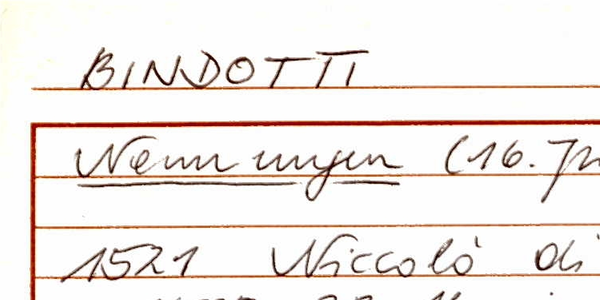 BINDOTTI
Nennungen (16. Jh
1521 Niccolò di